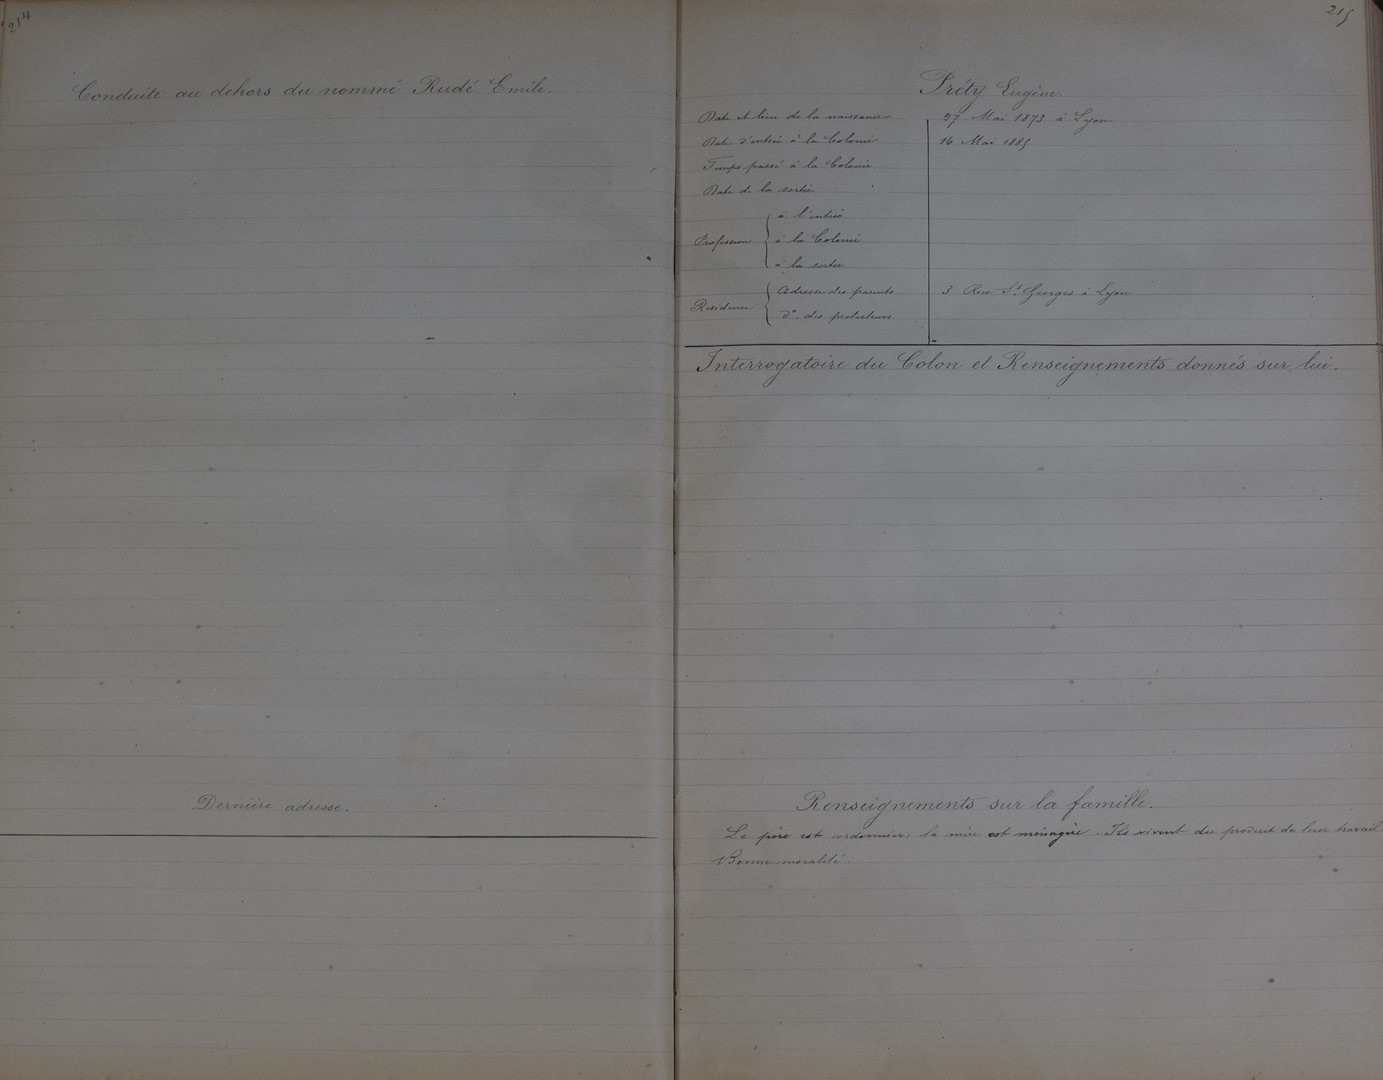 214
Conduite au dehors du nommé Rudé Emile.
Dernière adresse.
215
Préty Eugène.
Date et lieu de la naissance 27 Mai 1873 à Lyon
Date d'entrée à la Colonie 16 Mai 1885
Temps passé à la Colonie
Date de la sortie
Profession
à l'entrée
à la Colonie
à la sortie
Résidence
Adresse des parents 3 Rue St Georges à Lyon
do des protecteurs
Interrogatoire du Colon et Renseignements donnés sur lui.
Renseignements sur la famille.
Le père est cordonnier, la mère est ménagère. Ils vivent du produit de leur travail
Bonne moralité.